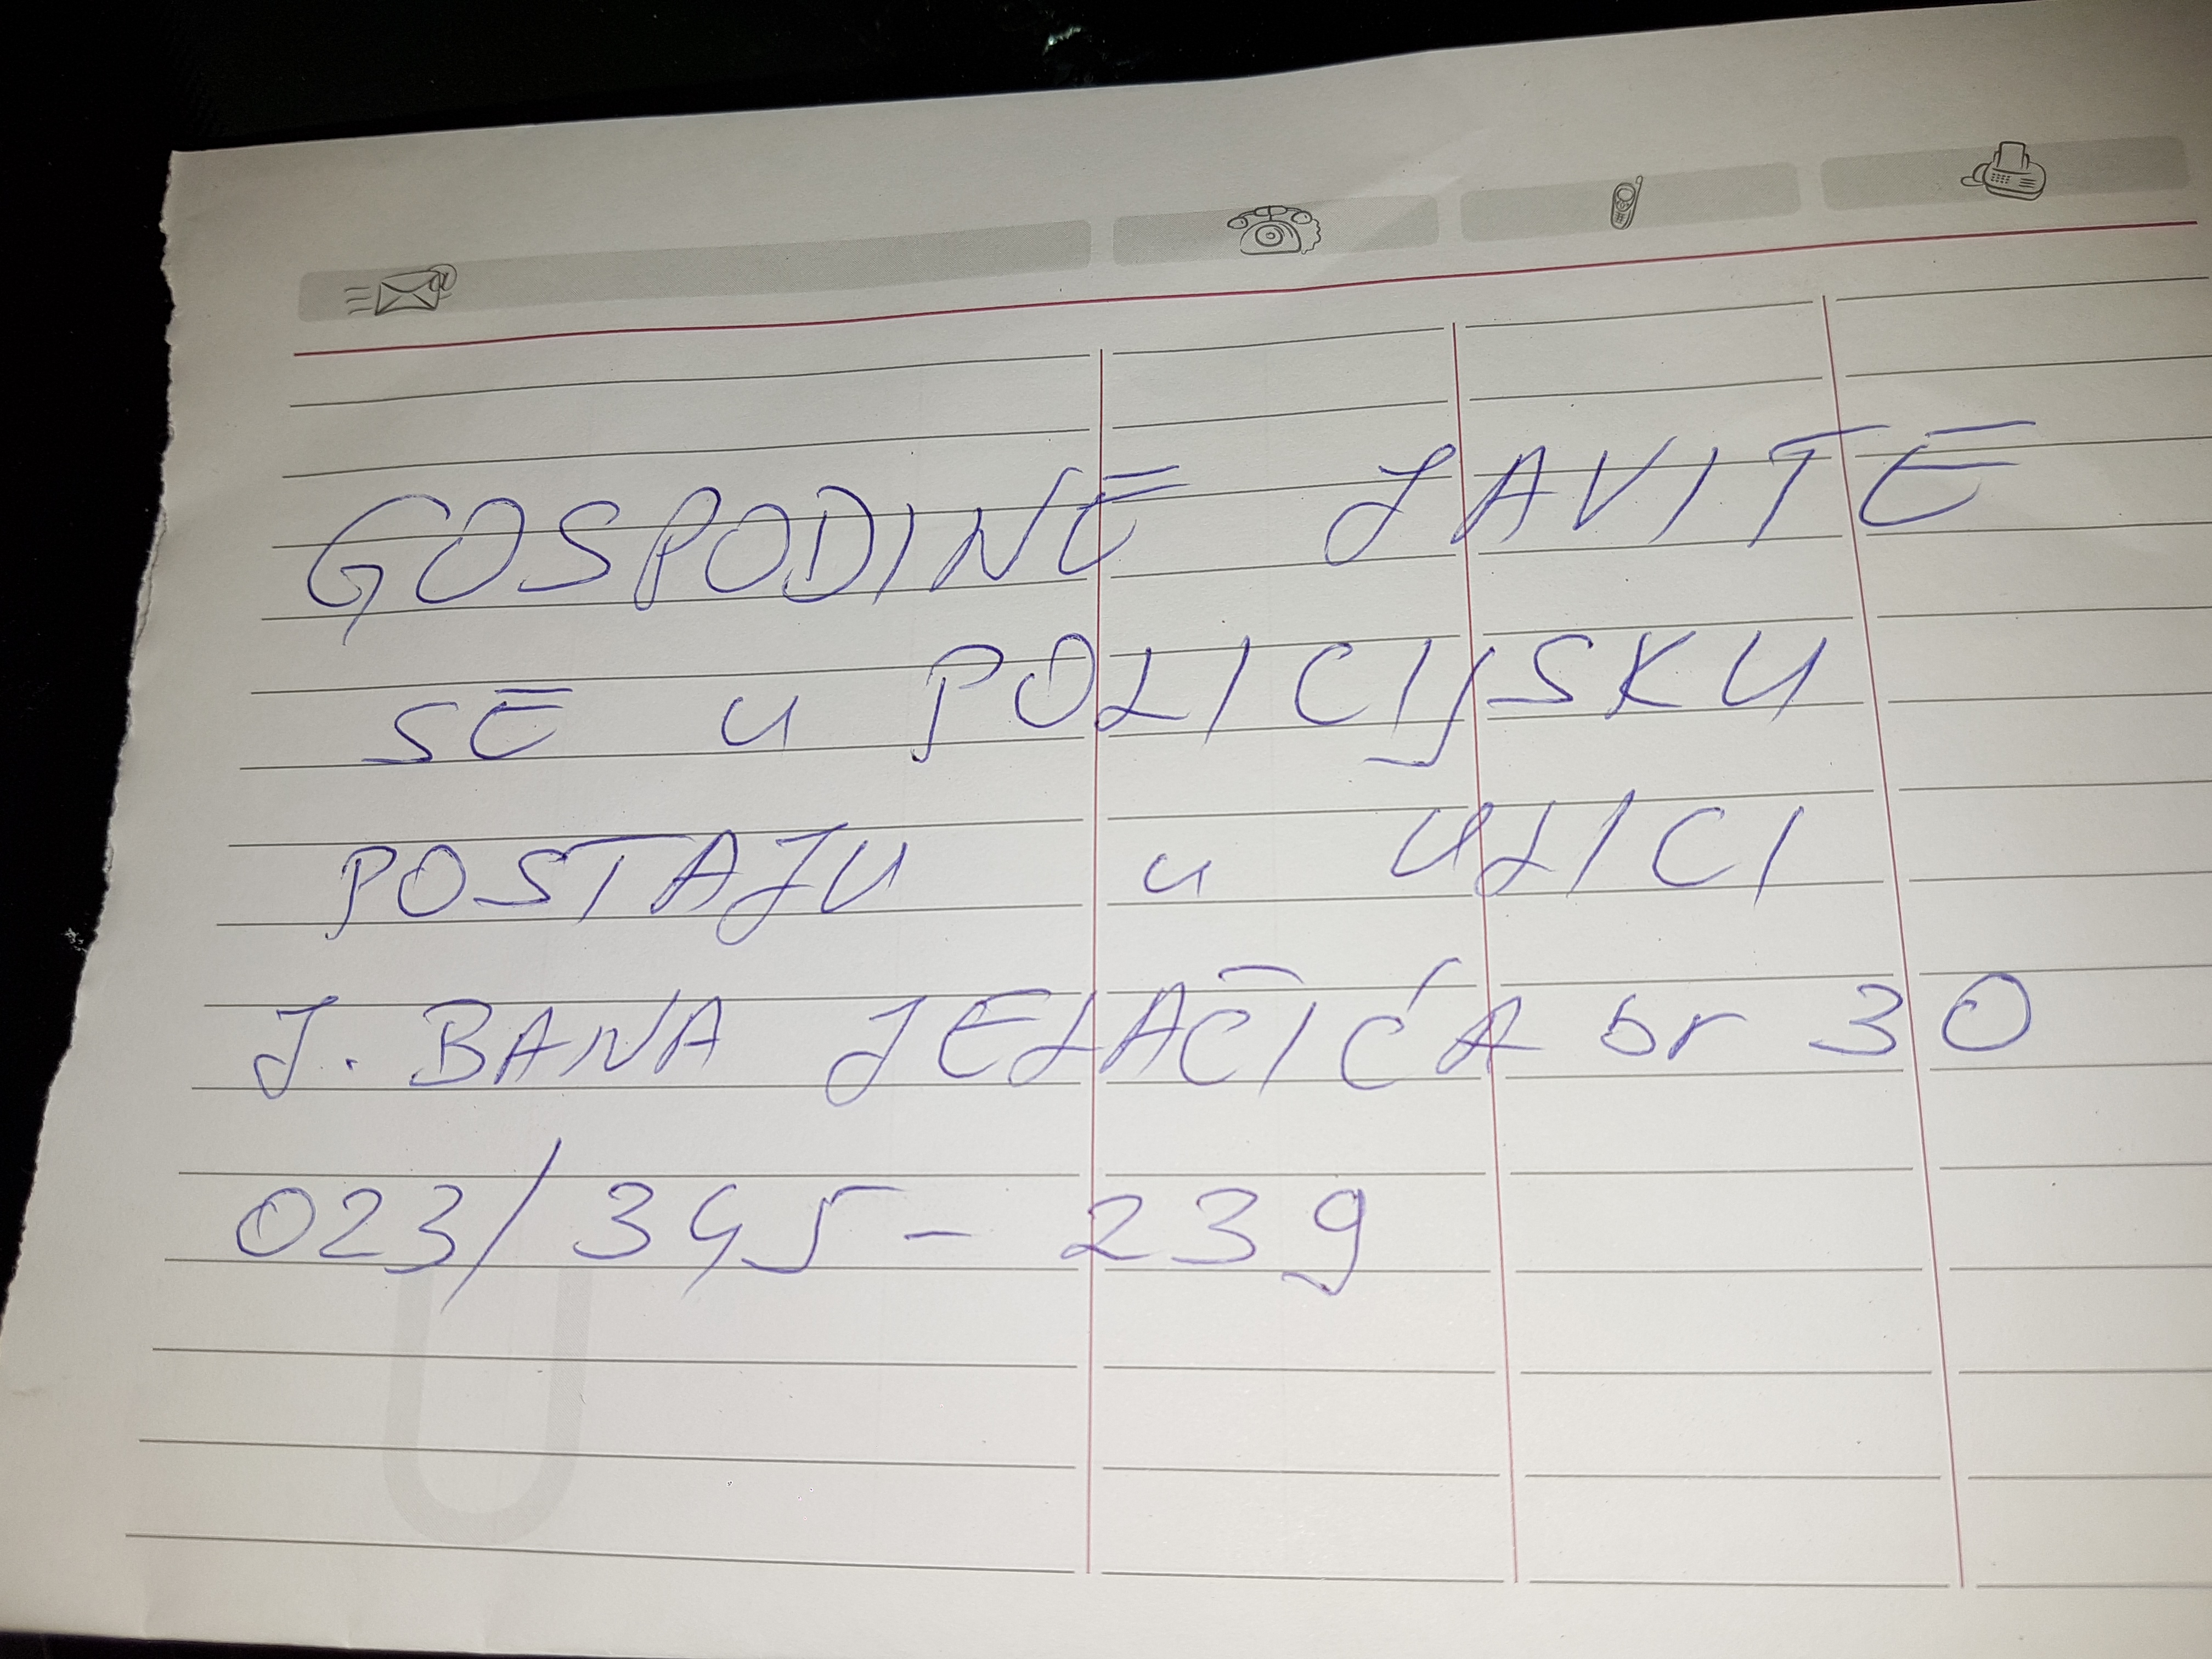 GOSPODINE JAVITE
SE u POLICIJSKU
POSTAJU u ULICI
J. BANA JELAČIĆA br 30
023/345-239